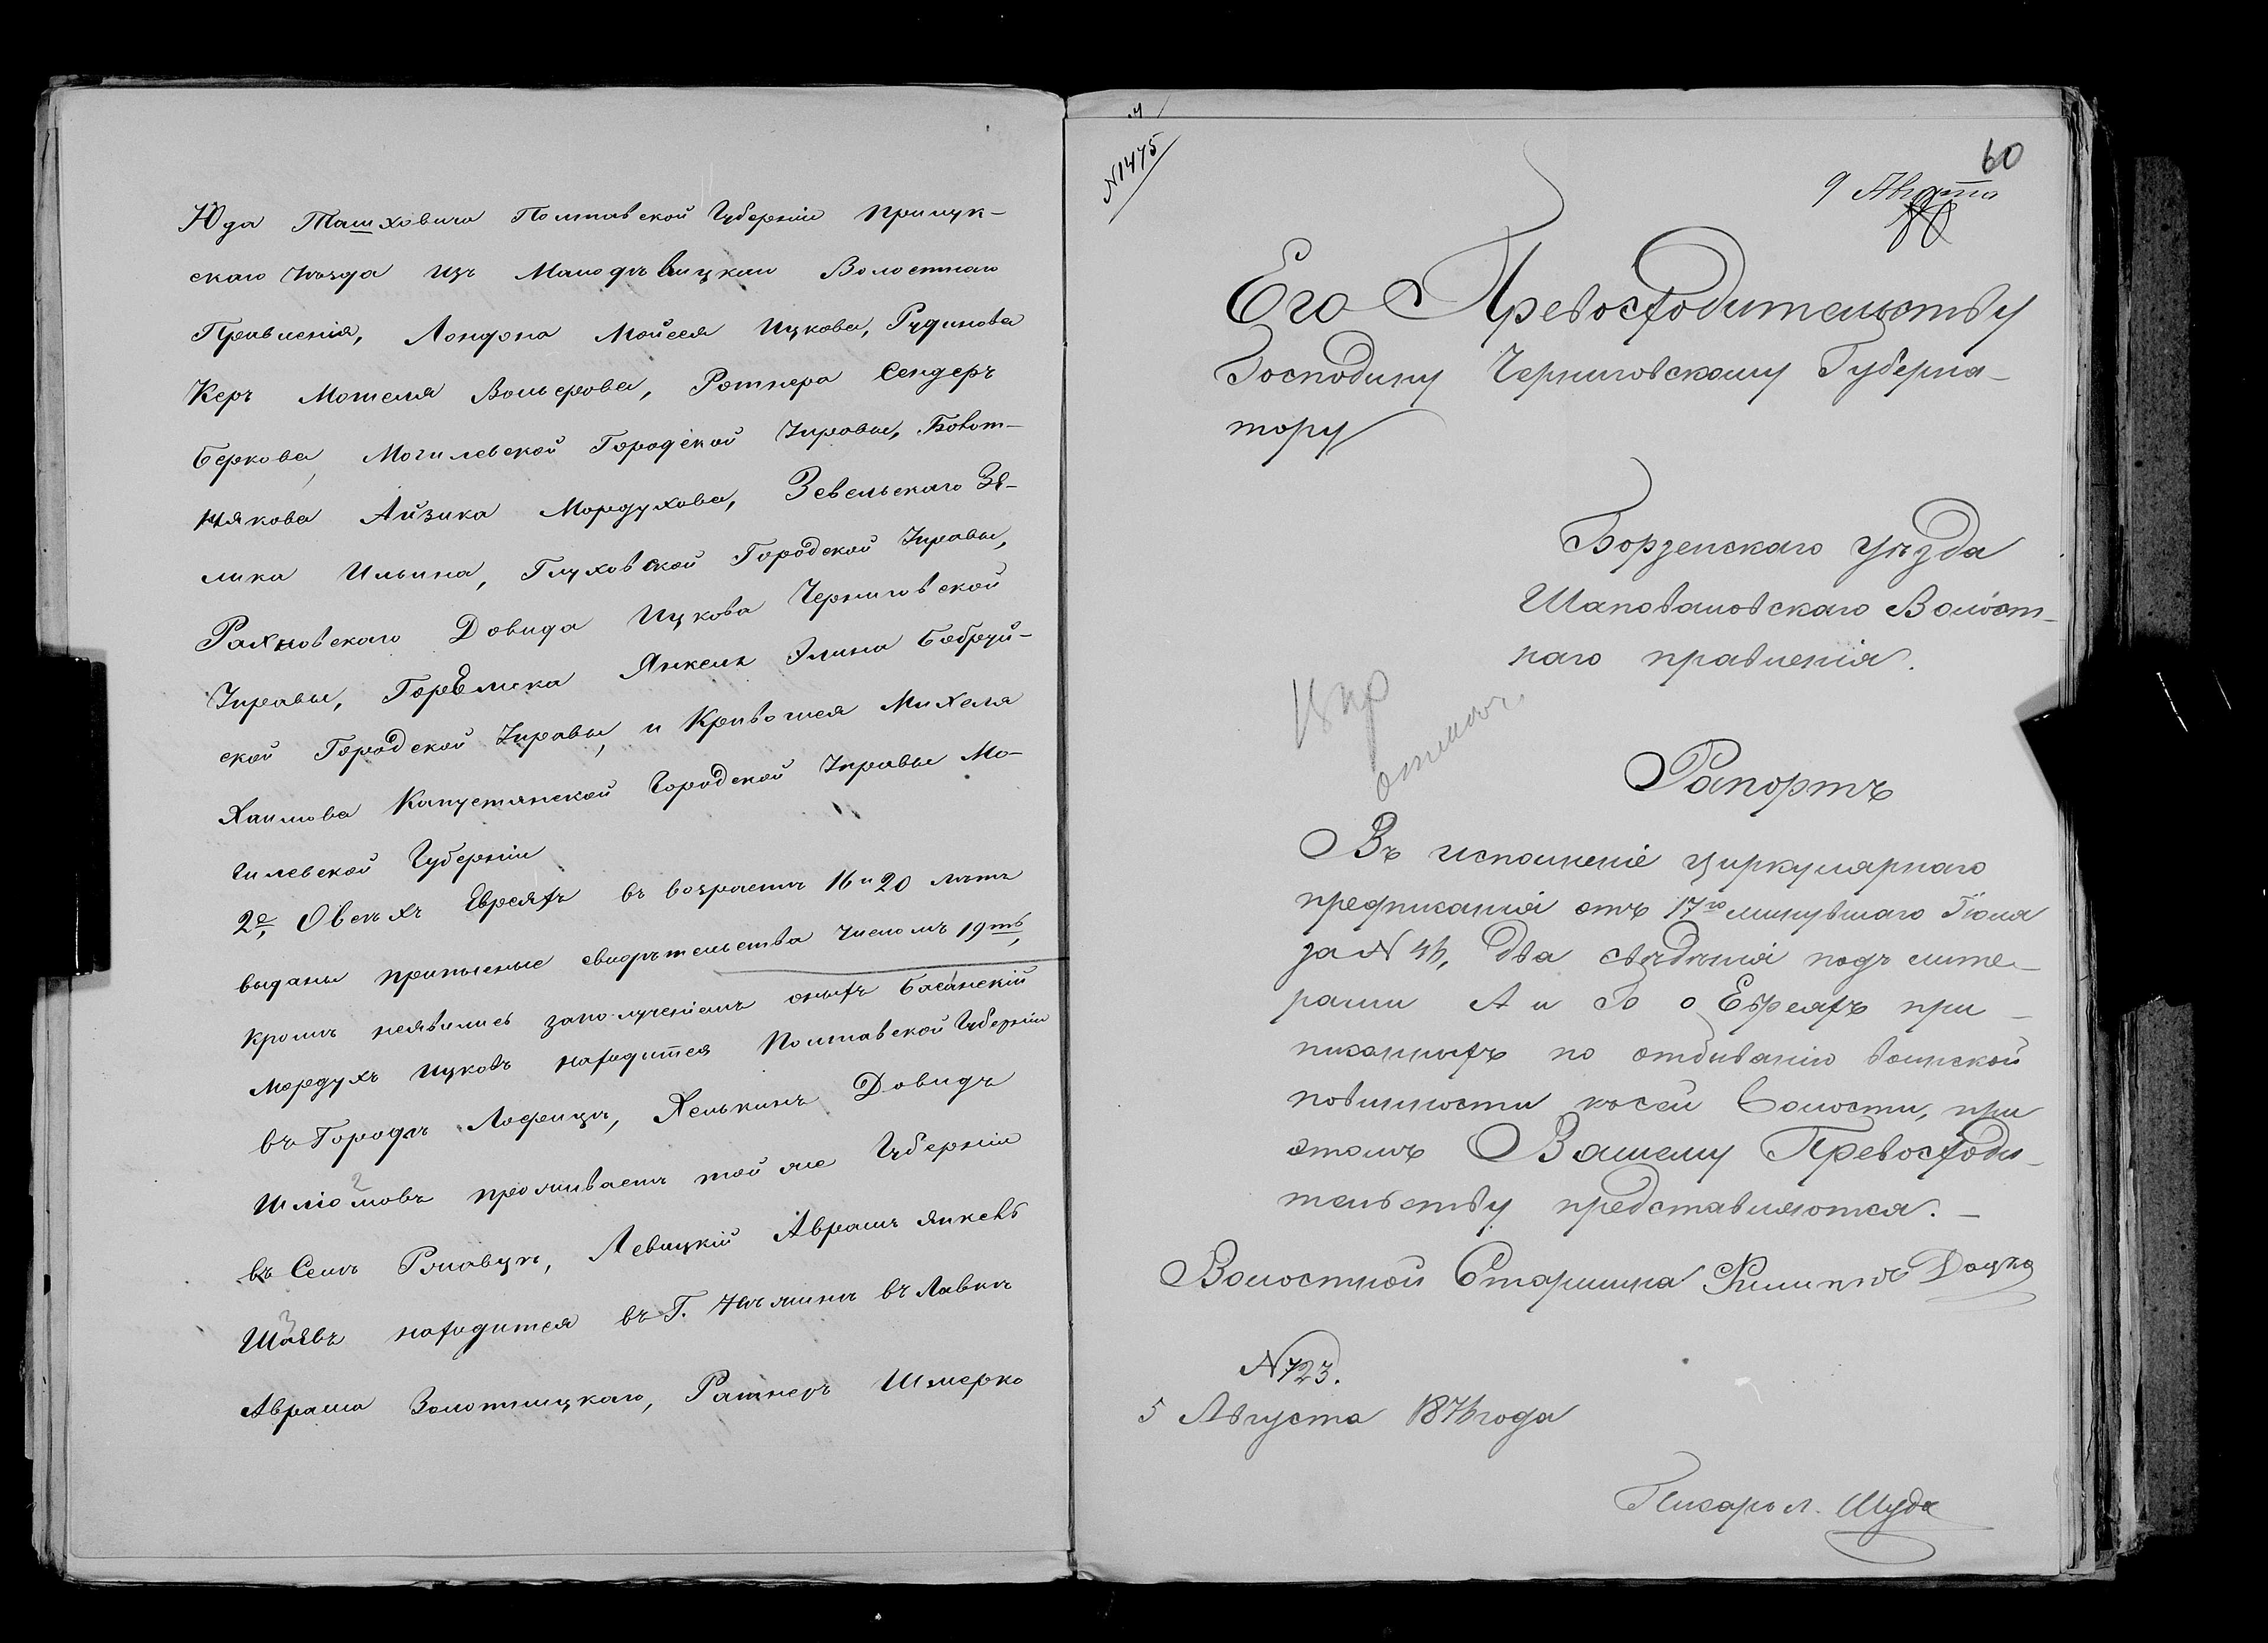 Юда Ташховича Полтавской Губерніи Прилук-
скаго Уѣзда изъ Малодѣвицкаго Волостнаго
Правленія, Лондона Мойсея Ицкова, Рудинова
Керъ Мотеля Вольфова, Ротнера Сендеръ
Беркова, Могилевской Городской Управы,
Айзика Мордухова, Зевельскаго Зе-
лика Ильина, Глуховской Городской Управы,
Рахновскаго Довида Ицкова Черниговской
Управы, Горелика Янкеля Элина Бобруй-
ской Городской Управы, и Кривошея Михеля
Хаимова Капустянской Городской Управы Мо-
гилевской Губерніи
2е, О всѣхъ Евреяхъ въ возрастѣ 16 и 20 лѣтъ
выданы приписные свидѣтельства числомъ 19ть,
кромѣ неявились заполученіемъ оныхъ Басанскій
Мордухъ Ицковъ находится Полтавской Губерніи
въ Городѣ Лофицѣ, Хенькинъ Довидъ
2
Шліомовъ проживаетъ той же Губерніи
въ Селѣ Левицкій Аврамъ Янкевъ
3
Шаявъ находится въ Г. Нѣжинѣ въ Лавкѣ
Аврама Золотницкаго, Ратнеръ Шмерко
N1475
60
9 Августа
Его Превосходительству
Господину Черниговскому Губерна-
тору
Борзенскаго уѣзда
Шаповаловскаго Волост-
наго правленія.
Рапортъ
Въ исполненіе циркулярнаго
предписанія отъ 17го минувшаго Іюля
за N 46, два свѣдѣнія подъ лите-
рами А и Б о Евреяхъ при-
писанныхъ по отбыванію воинской
повинности къ сей волости, при
этомъ Вашему Превосходи-
тельству представляются. -
Волостной Старшина Филиппъ Дацко
N723.
5 Августа 1876 года
Писарь Л. Шуда